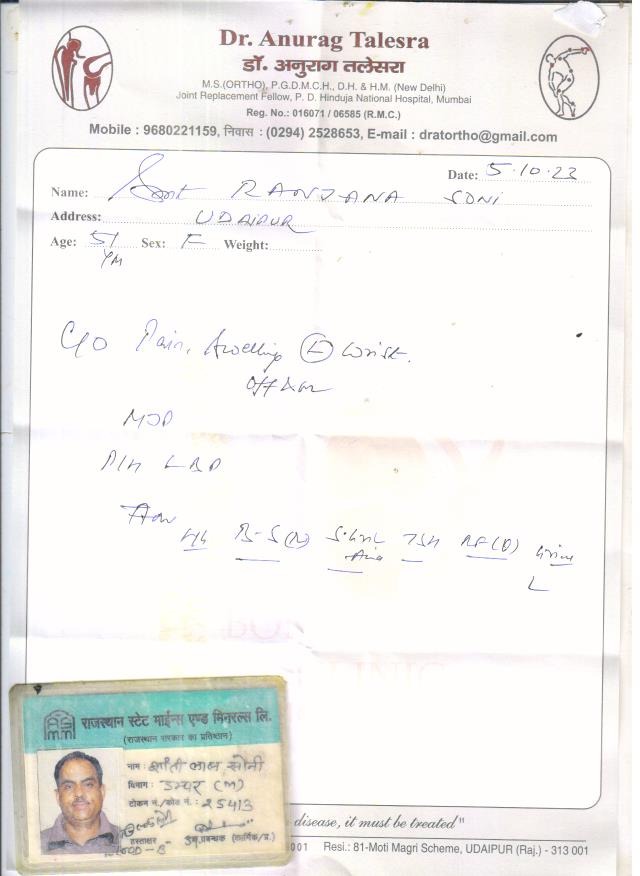 Dr. Anurag Talesra
डॉ. अनुराग तलेसरा
M.S.(ORTHO), P.G.D.M.C.H., D.H. & H.M. (New Delhi)
Joint Replacement Fellow, P. D. Hinduja National Hospital, Mumbai
Reg. No.: 016071 / 06585 (R.M.C.)
Mobile : 9680221159, निवास : (0294) 2528653, E-mail : dratortho@gmail.com
Date: 5.10.23
Name: Smt RANJANA SONI
Address: UDAIPUR
Age: 51 Sex: F Weight:
C/o Pain, Swelling (L) Wrist.
off & on
MJP
P/H LBP
Hb B-S(R) S. Uric TSH RF(Q) Urine
Acid
राजस्थान स्टेट माईन्स एण्ड मिनरल्स लि.
(राजस्थान सरकार का प्रतिष्ठान)
नाम : शांती लाल सोनी
विभाग : उम्पर (M)
टोकन नं./कोड नं. : 25413
हस्ताक्षर उप.प्रबन्धक (कार्मिक/प्र.)
disease, it must be treated"
001 Resi.: 81-Moti Magri Scheme, UDAIPUR (Raj.) - 313 001